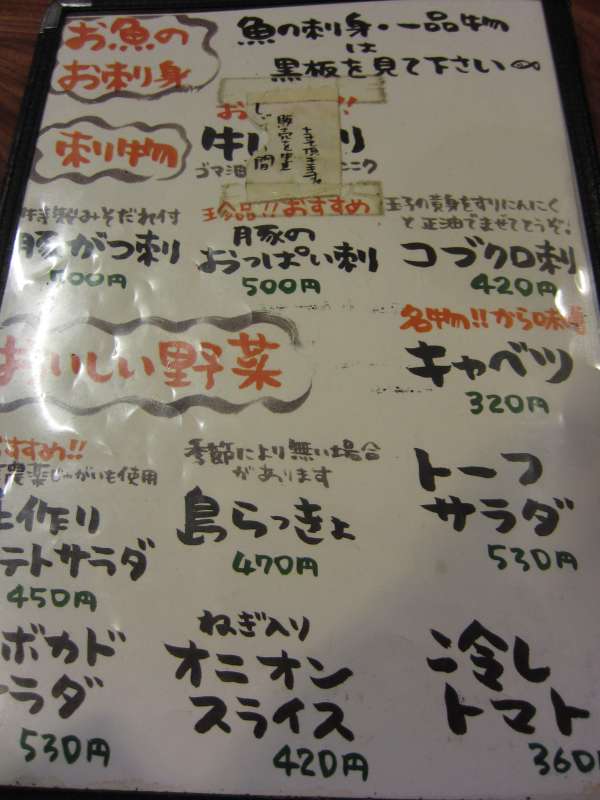 お魚の
お刺身
魚の刺身・一品物
は
黒板を見て下さい
刺り物
お
!!
牛
り
ゴマ油
ニンニク
しばらく間
販売を中止
させて頂きます。
特製みそだれ付
豚がつ刺
500円
珍品!!おすすめ
豚の
おっぱい刺
500円
玉子の黄身をすりにんにく
と正油でまぜてどうぞ。
コブクロ刺
420円
おいしい野菜
名物!!から味噌
キャベツ
320円
おすすめ!!
農薬じゃがいも使用
手作り
テトサラダ
450円
季節により無い場合
があります
島らっきょ
470円
トーフ
サラダ
530円
ボカド
サラダ
530円
ねぎ入り
オニオン
スライス
420円
冷し
トマト
360円